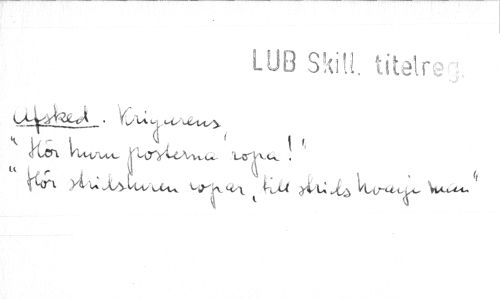 LUB Skill. titelreg.
Afsked. Krigarens
"Hör huru posterna ropa!"
"Hör stridsluren ropar, till strids hvarje man"